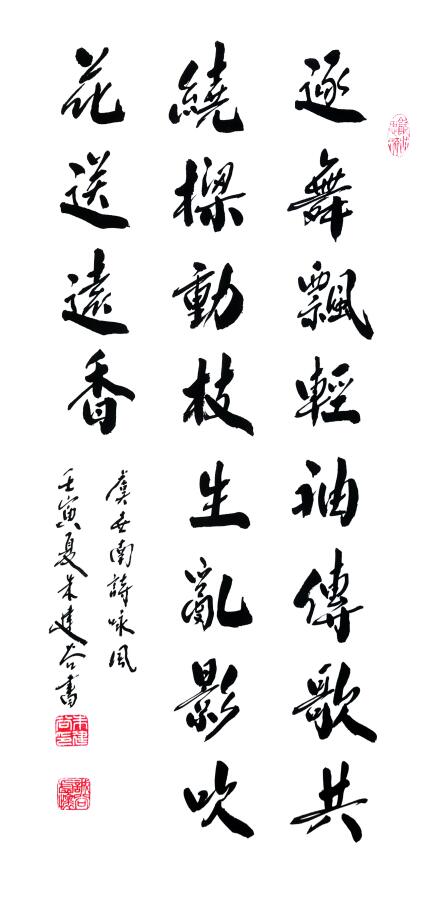 逐舞飄輕袖傳歌共
繞樑動枝生亂影吹
花送遠香
虞世南詩咏風
壬寅夏朱建谷書